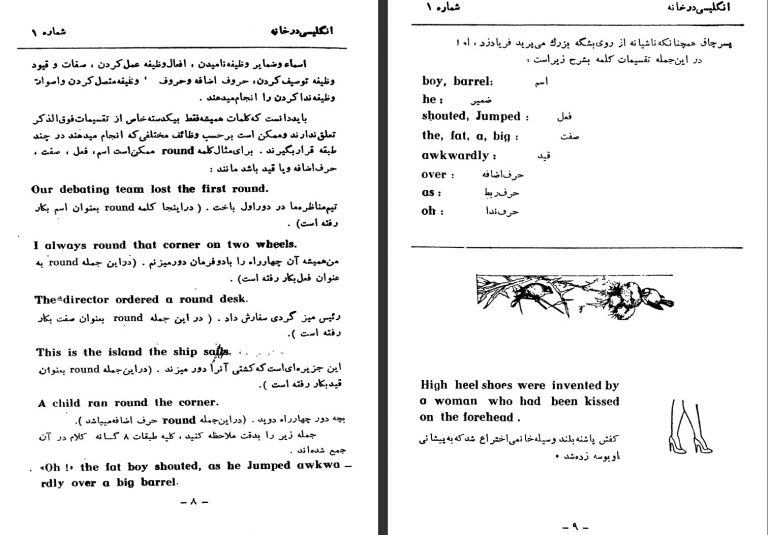 انگلیسی در خانه
شماره ۱
اسماء و ضمایر وظیفه نامیدن ، افعال وظیفه عمل کردن ، صفات و قیود
وظیفه توصیف کردن، حروف اضافه و حروف ' وظیفه متصل کردن و اصوات
وظیفه ندا کردن را انجام میدهند .
باید دانست که کلمات همیشه فقط بیکدسته خاص از تقسیمات فوق الذکر
تعلق ندارند و ممکن است برحسب وظائف مختلفی که انجام میدهند در چند
طبقه قرار بگیرند . برای مثال کلمه round ممکن است اسم ، فعل ، صفت ،
حرف اضافه و یا قید باشد مانند :
Our debating team lost the first round.
تیم مناظره ما در دور اول باخت . ( در اینجا کلمه round بعنوان اسم بکار
رفته است) .
I always round that corner on two wheels.
من همیشه آن چهار راه را با دو فرمان دور میزنم . (در این جمله round به
عنوان فعل بکار رفته است) .
The director ordered a round desk.
رئیس میز گردی سفارش داد . ( در این جمله round بعنوان صفت بکار
رفته است ) .
This is the island the ship sails
این جزیره ای است که کشتی آنرا دور میزند . (در این جمله round بعنوان
قید بکار رفته است ) .
A child ran round the corner.
بچه دور چهار راه دوید . (در این جمله round حرف اضافه میباشد ) .
جمله زیر را بدقت ملاحظه کنید ، کلیه طبقات ۸ گانه کلام در آن
جمع شده اند .
«Oh !» the fat boy shouted, as he Jumped awkwa –
rdly over a big barrel.
– ۸ –
انگلیسی در خانه
شماره ۱
پسر چاق همچنانکه ناشیانه از روی بشگه بزرگ می پرید فریاد زد ، اه !
در این جمله تقسیمات کلمه بشرح زیر است :
boy, barrel: اسم
he : ضمیر
shouted, Jumped : فعل
the, fat, a, big : صفت
awkwardly : قید
over : حرف اضافه
as : حرف ربط
oh : حرف ندا
High heel shoes were invented by
a woman who had been kissed
on the forehead .
کفش پاشنه بلند وسیله خانمی اختراع شد که به پیشانی
او بوسه زده شد .
– ۹ –